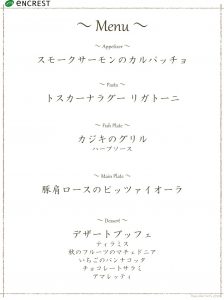 ENCREST
～ Menu ～
～ Appetizer ～
スモークサーモンのカルパッチョ
～ Pasta ～
トスカーナラグー リガトーニ
～ Fish Plate ～
カジキのグリル
ハーブソース
～ Main Plate ～
豚肩ロースのピッツァイオーラ
～ Dessert ～
デザートブッフェ
ティラミス
秋のフルーツのマチェドニア
いちごのパンナコッタ
チョコレートサラミ
アマレッティ